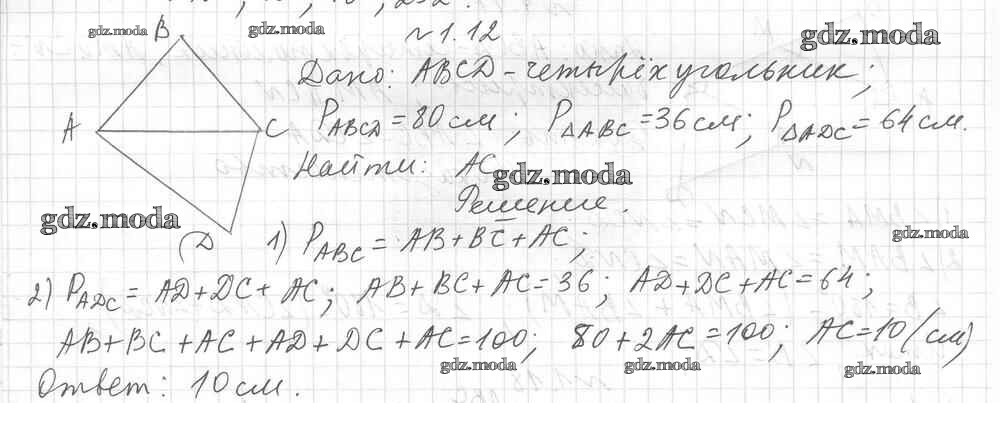 №1.12
B
Дано: ABCD – четырёхугольник;
A
C
P_ABCD = 80 см; P_ΔABC = 36 см; P_ΔADC = 64 см.
Найти: AC
Решение.
D
1) P_ABC = AB + BC + AC;
2) P_ADC = AD + DC + AC; AB + BC + AC = 36; AD + DC + AC = 64;
AB + BC + AC + AD + DC + AC = 100; 80 + 2AC = 100; AC = 10 (см)
Ответ: 10 см.
gdz.moda
gdz.moda
gdz.moda
gdz.moda
gdz.moda
gdz.moda
gdz.moda
gdz.moda
gdz.moda